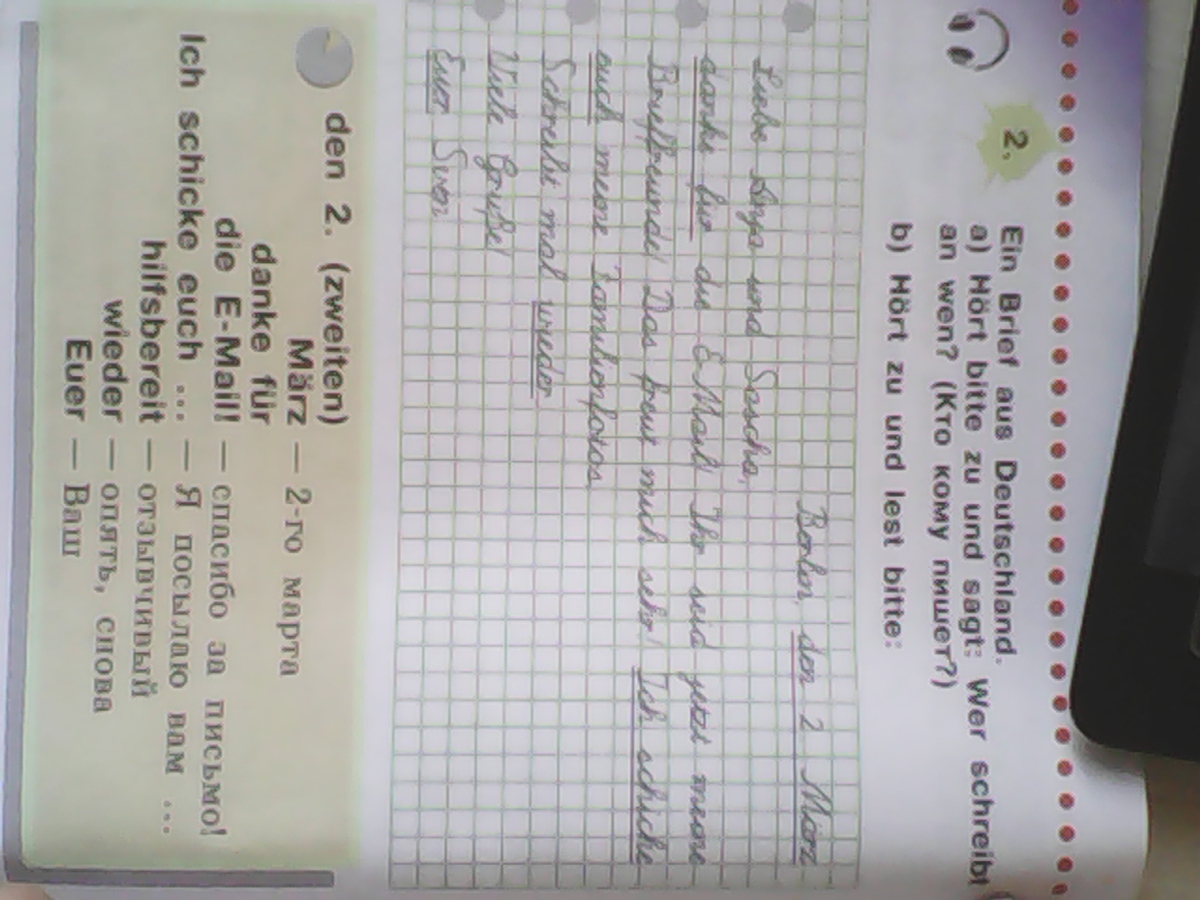 2. Ein Brief aus Deutschland.
a) Hört bitte zu und sagt: Wer schreibt
an wen? (Кто кому пишет?)
b) Hört zu und lest bitte:
Berlin, den 2. März
Liebe Anja und Sascha,
danke für die E-Mail! Ihr seid jetzt meine
Brieffreunde! Das freut mich sehr! Ich schicke
euch meine Familienfotos.
Schreibt mal wieder
Viele Grüße!
Euer Sven
den 2. (zweiten)
März — 2-го марта
danke für
die E-Mail! — спасибо за письмо!
Ich schicke euch ... — Я посылаю вам ...
hilfsbereit — отзывчивый
wieder — опять, снова
Euer — Ваш